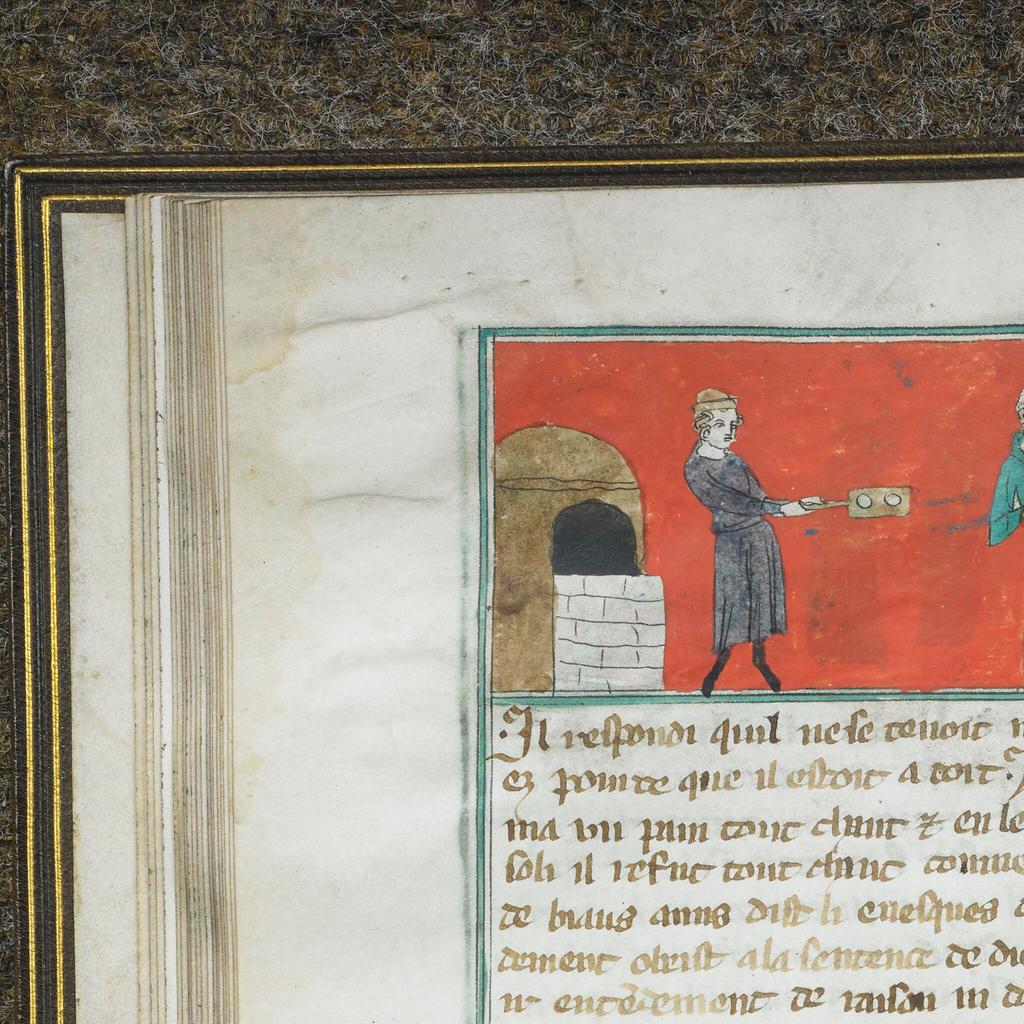 Il respondi quil ne se tenoit
ez pointe que il estoit a doit
ma vn pain tout chaut ⁊ en le
soli il refut tout chaut comme
de biaus amis dist li euesques
dement obeist a la sentence de di
ir entendement de raison in d